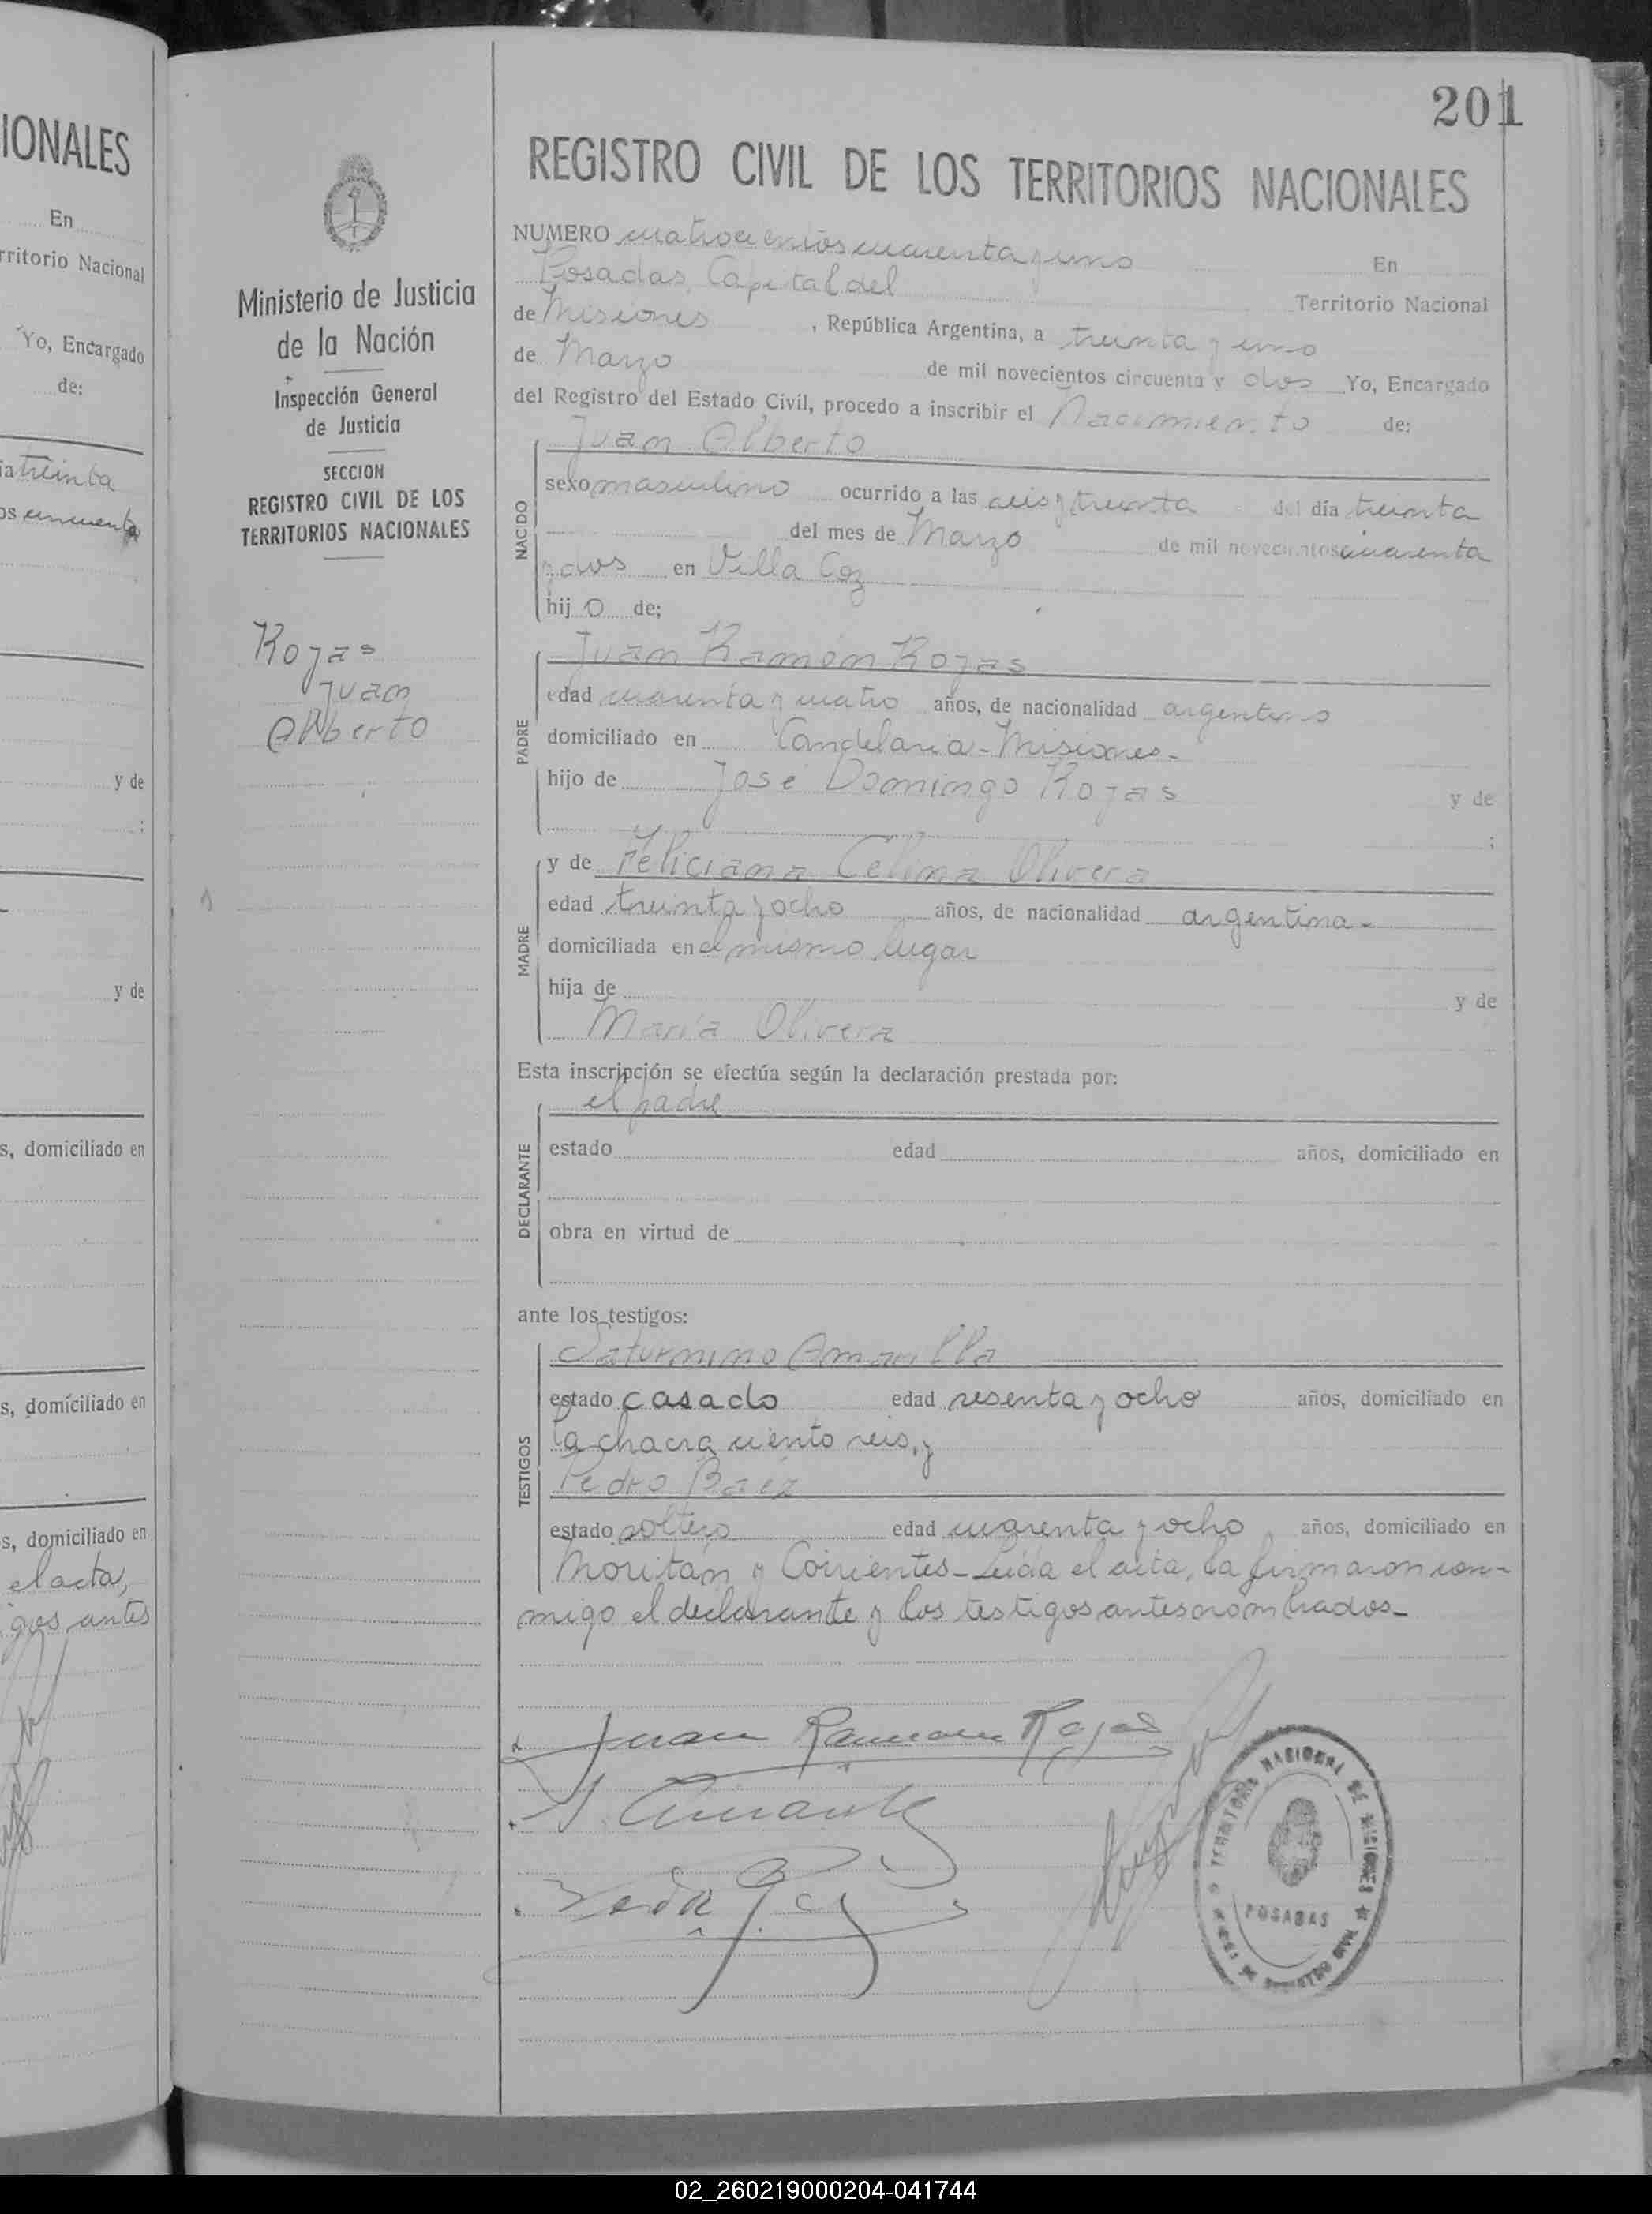 IONALES
En
rritorio Nacional
Yo, Encargado
de:
ia treinta
os cincuenta
y de
;
y de
s, domiciliado en
s, domiciliado en
s, domiciliado en
el acta,
gos antes
201
Ministerio de Justicia
de la Nación
Inspección General
de Justicia
SECCION
REGISTRO CIVIL DE LOS
TERRITORIOS NACIONALES
Rojas
Juan
Alberto
REGISTRO CIVIL DE LOS TERRITORIOS NACIONALES
NUMERO cuatrocientos cuarenta y uno En
Posadas, Capital del Territorio Nacional
de Misiones , República Argentina, a treinta y uno
de Marzo de mil novecientos circuenta y dos Yo, Encargado
del Registro del Estado Civil, procedo a inscribir el Nacimiento de:
NACIDO
Juan Alberto
sexo masculino ocurrido a las seis y treinta del día treinta
del mes de Marzo de mil novecientos cincuenta
y dos en Villa Coz
hij o de;
PADRE
Juan Ramón Rojas
edad cuarenta y cuatro años, de nacionalidad argentino
domiciliado en Candelaria - Misiones -
hijo de José Domingo Rojas y de
;
MADRE
y de Feliciana Celina Olivera
edad treinta y ocho años, de nacionalidad argentina -
domiciliada en el mismo lugar
hija de y de
María Olivera
Esta inscripción se efectúa según la declaración prestada por:
DECLARANTE
el padre
estado edad años, domiciliado en
obra en virtud de
ante los testigos:
TESTIGOS
Saturnino Amarilla
estado casado edad sesenta y ocho años, domiciliado en
la chacra ciento seis, y
Pedro Baez
estado soltero edad cuarenta y ocho, años, domiciliado en
Moritán y Corrientes - Leída el acta, la firmaron con-
migo el declarante y los testigos antes nombrados -
Juan Ramon Rojas
TERRITORIO NACIONAL DE MISIONES
POSADAS
REGISTRO CIVIL
02_260219000204-041744